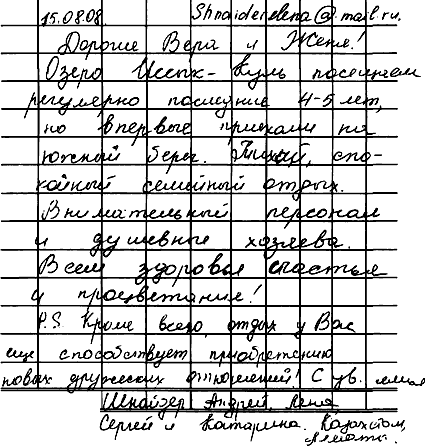 15.08.08 Shnaiderelena@mail.ru.
Дорогие Вера и Женя!
Озеро Иссык-Куль посещаем
регулярно последние 4-5 лет,
но впервые приехали на
южный берег. Тихий, спо-
койный семейный отдых.
Внимательный персонал
и душевные хозяева.
Всем здоровья счастья
и процветания!
P.S. Кроме всего, отдых у Вас
еще способствует приобретению
новых дружеских отношений! С ув. семья
Шнайдер Андрей, Лена
Сергей и Катарина. Казахстан,
Алматы.